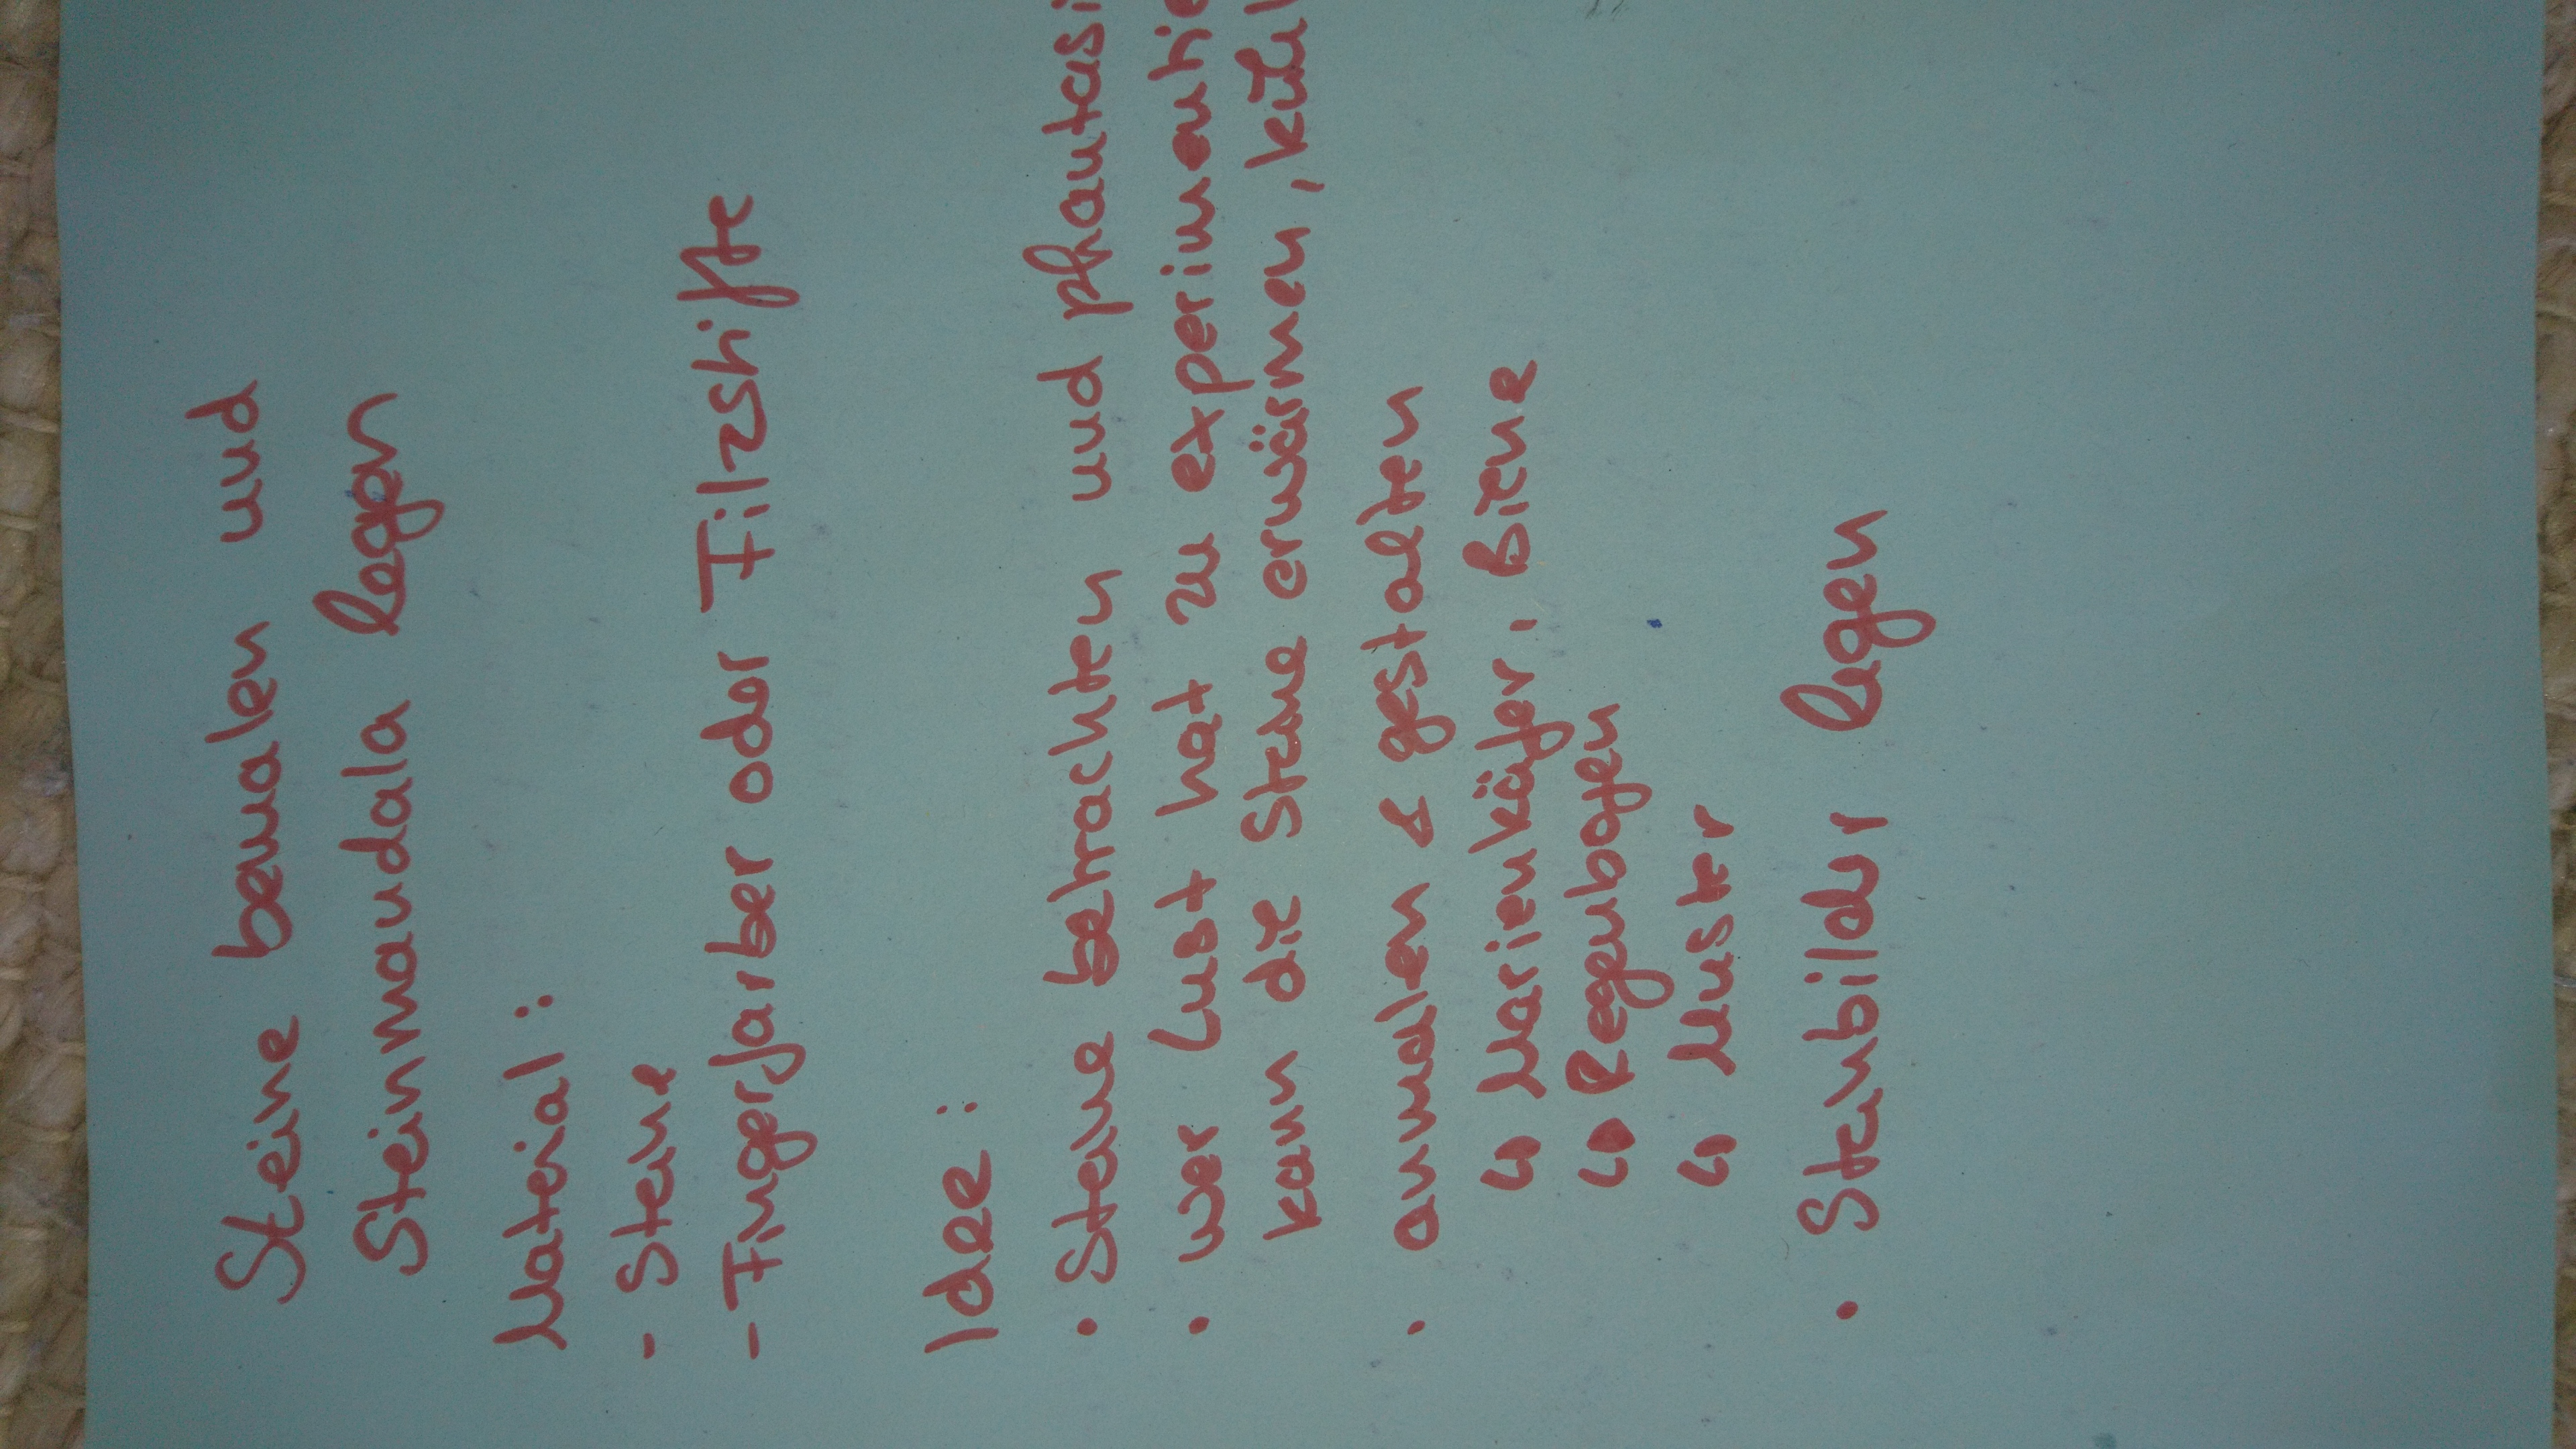 Steine bemalen und
Steinmandala legen
Material:
- Steine
- Fingerfarber oder Filzstifte
Idee:
• Steine betrachten und phantasi
• wer Lust hat zu experimentie
kann die Steine erwärmen, kühl
• anmalen & gestalten
↳ Marienkäfer, Biene
↳ Regenbogen
↳ Muster
• Steinbilder legen